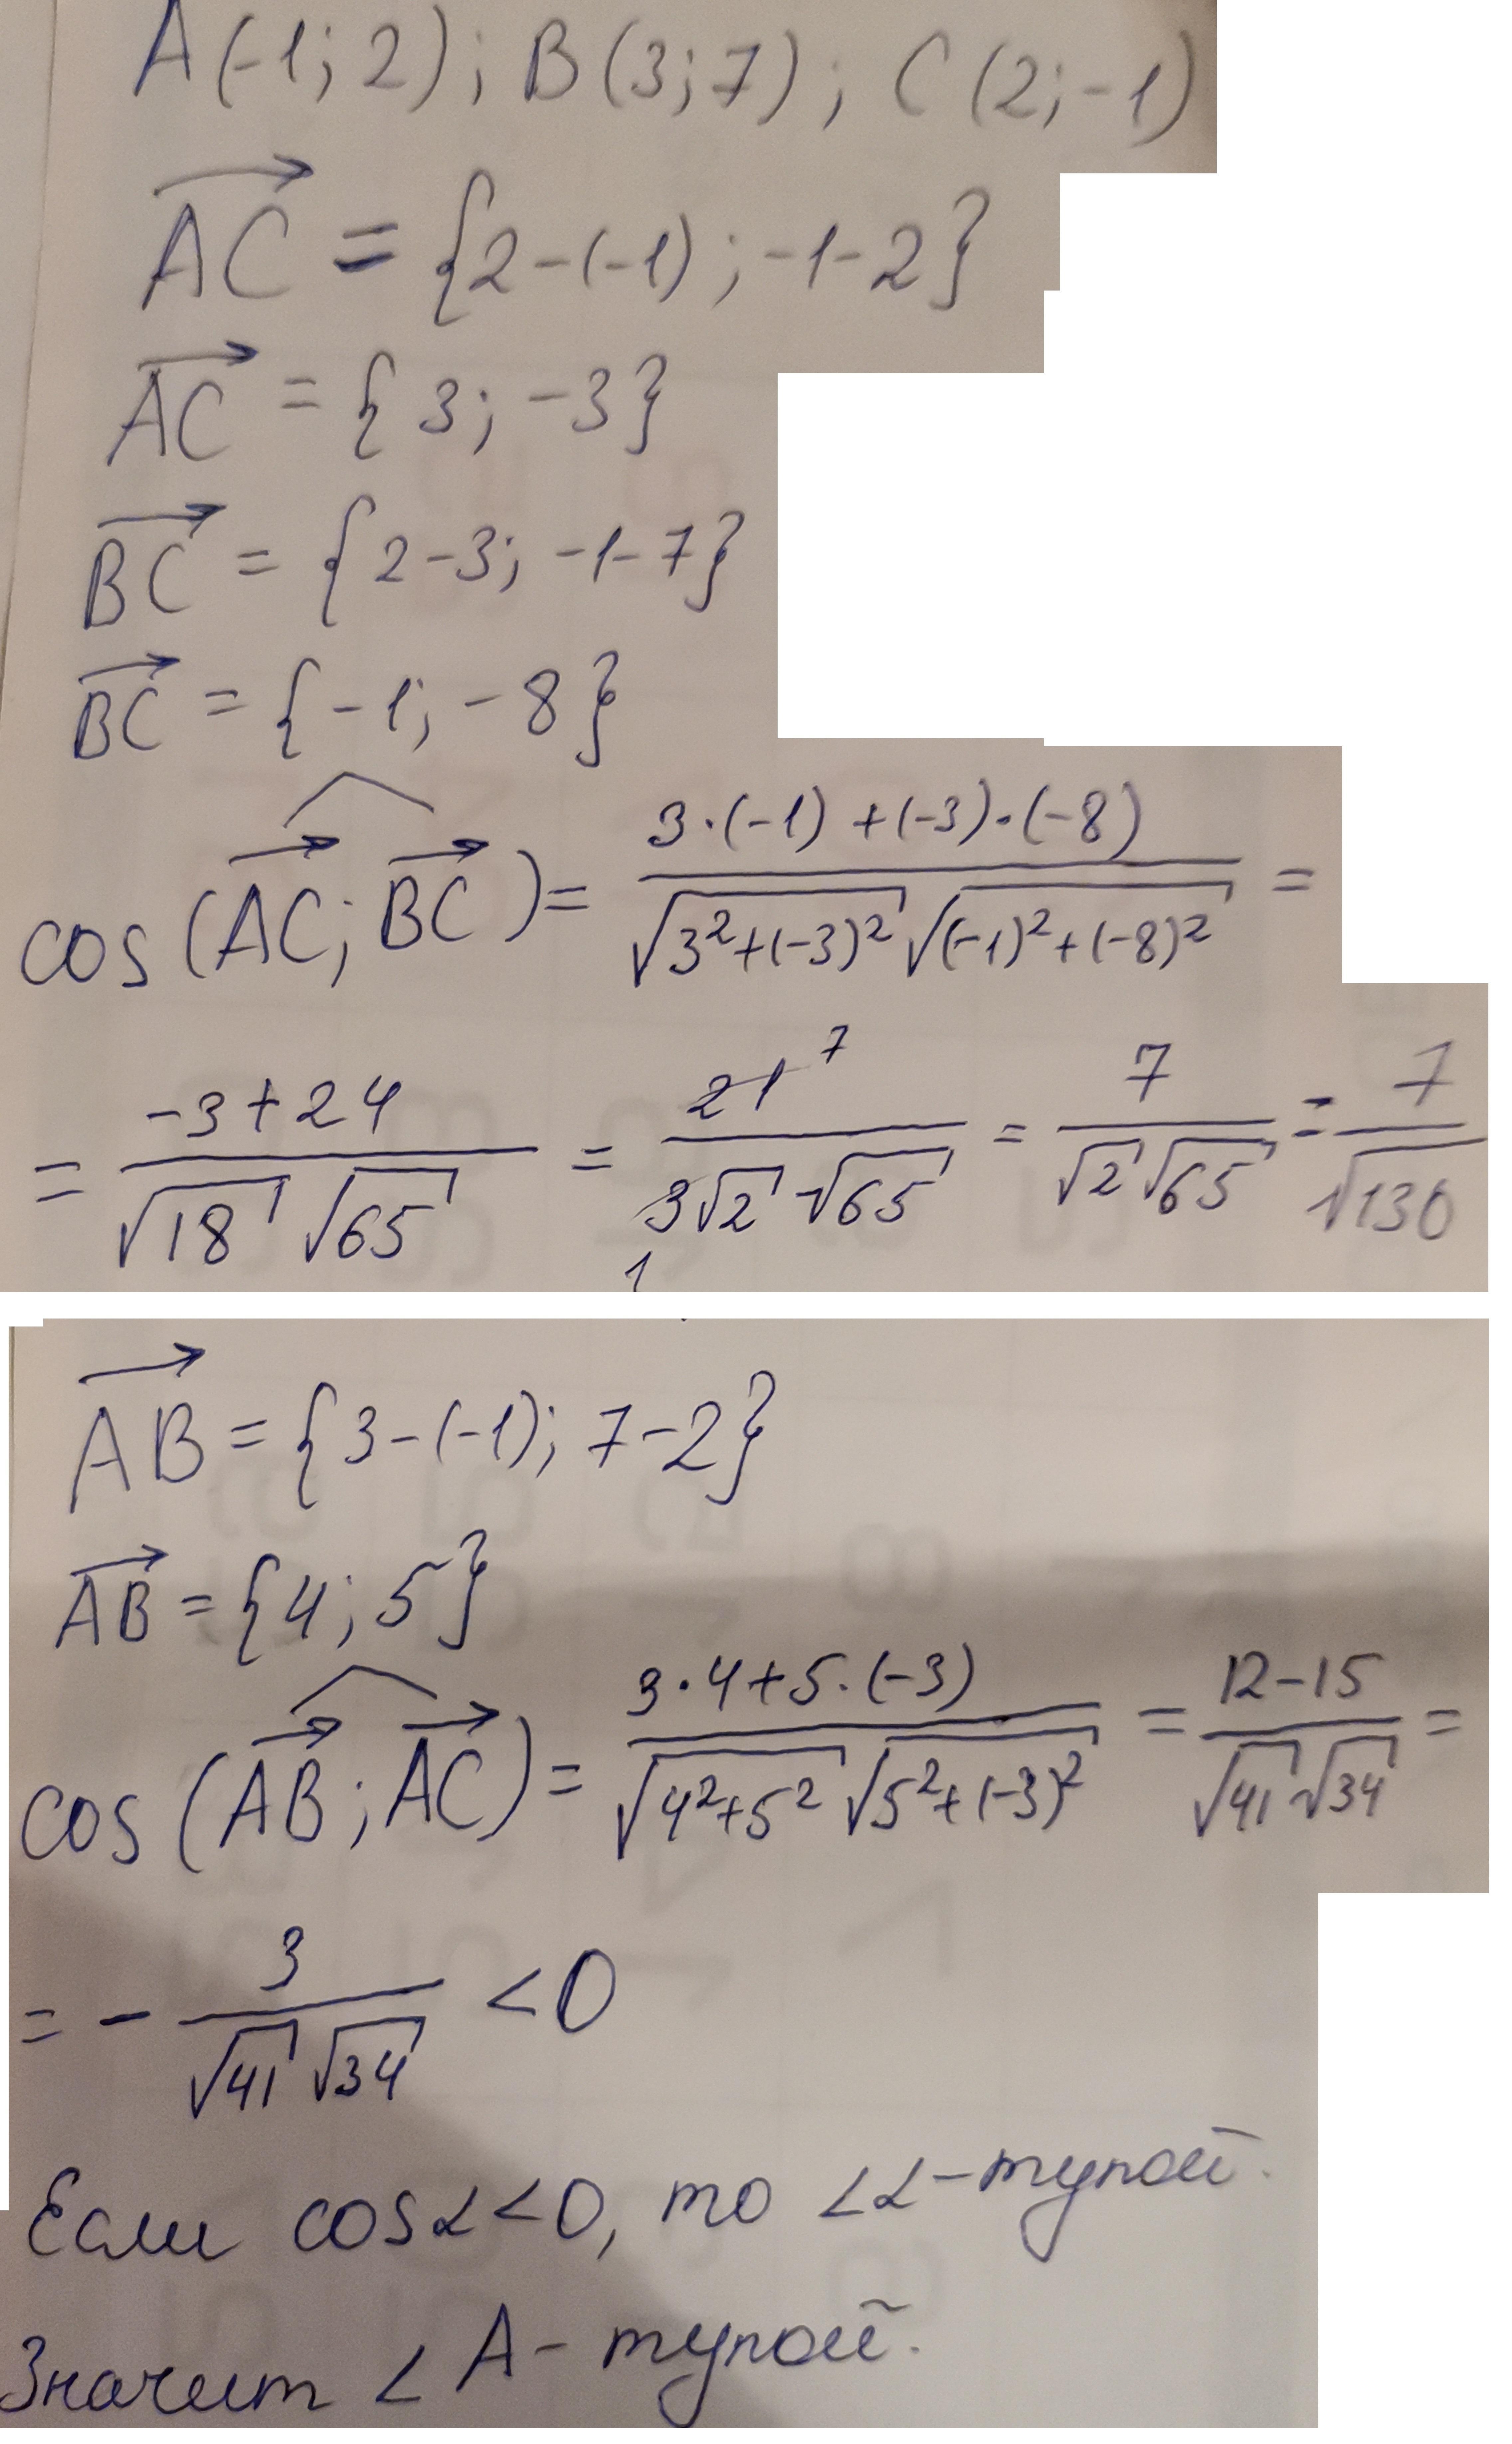 A(-1; 2); B(3; 7); C(2; -1)
AC = {2-(-1); -1-2}
AC = {3; -3}
BC = {2-3; -1-7}
BC = {-1; -8}
cos(AC; BC) = (3·(-1)+(-3)·(-8))/(√(3²+(-3)²) √((-1)²+(-8)²)) =
= (-3+24)/(√18 √65) = 21 7/(3√2 √65) 1 = 7/(√2 √65) = 7/√130
AB = {3-(-1); 7-2}
AB = {4; 5}
cos(AB; AC) = (3·4+5·(-3))/(√(4²+5²) √(5²+(-3)²)) = (12-15)/(√41 √34) =
= - 3/(√41 √34) < 0
Если cosα<0, то ∠α-тупой.
Значит ∠A- тупой.